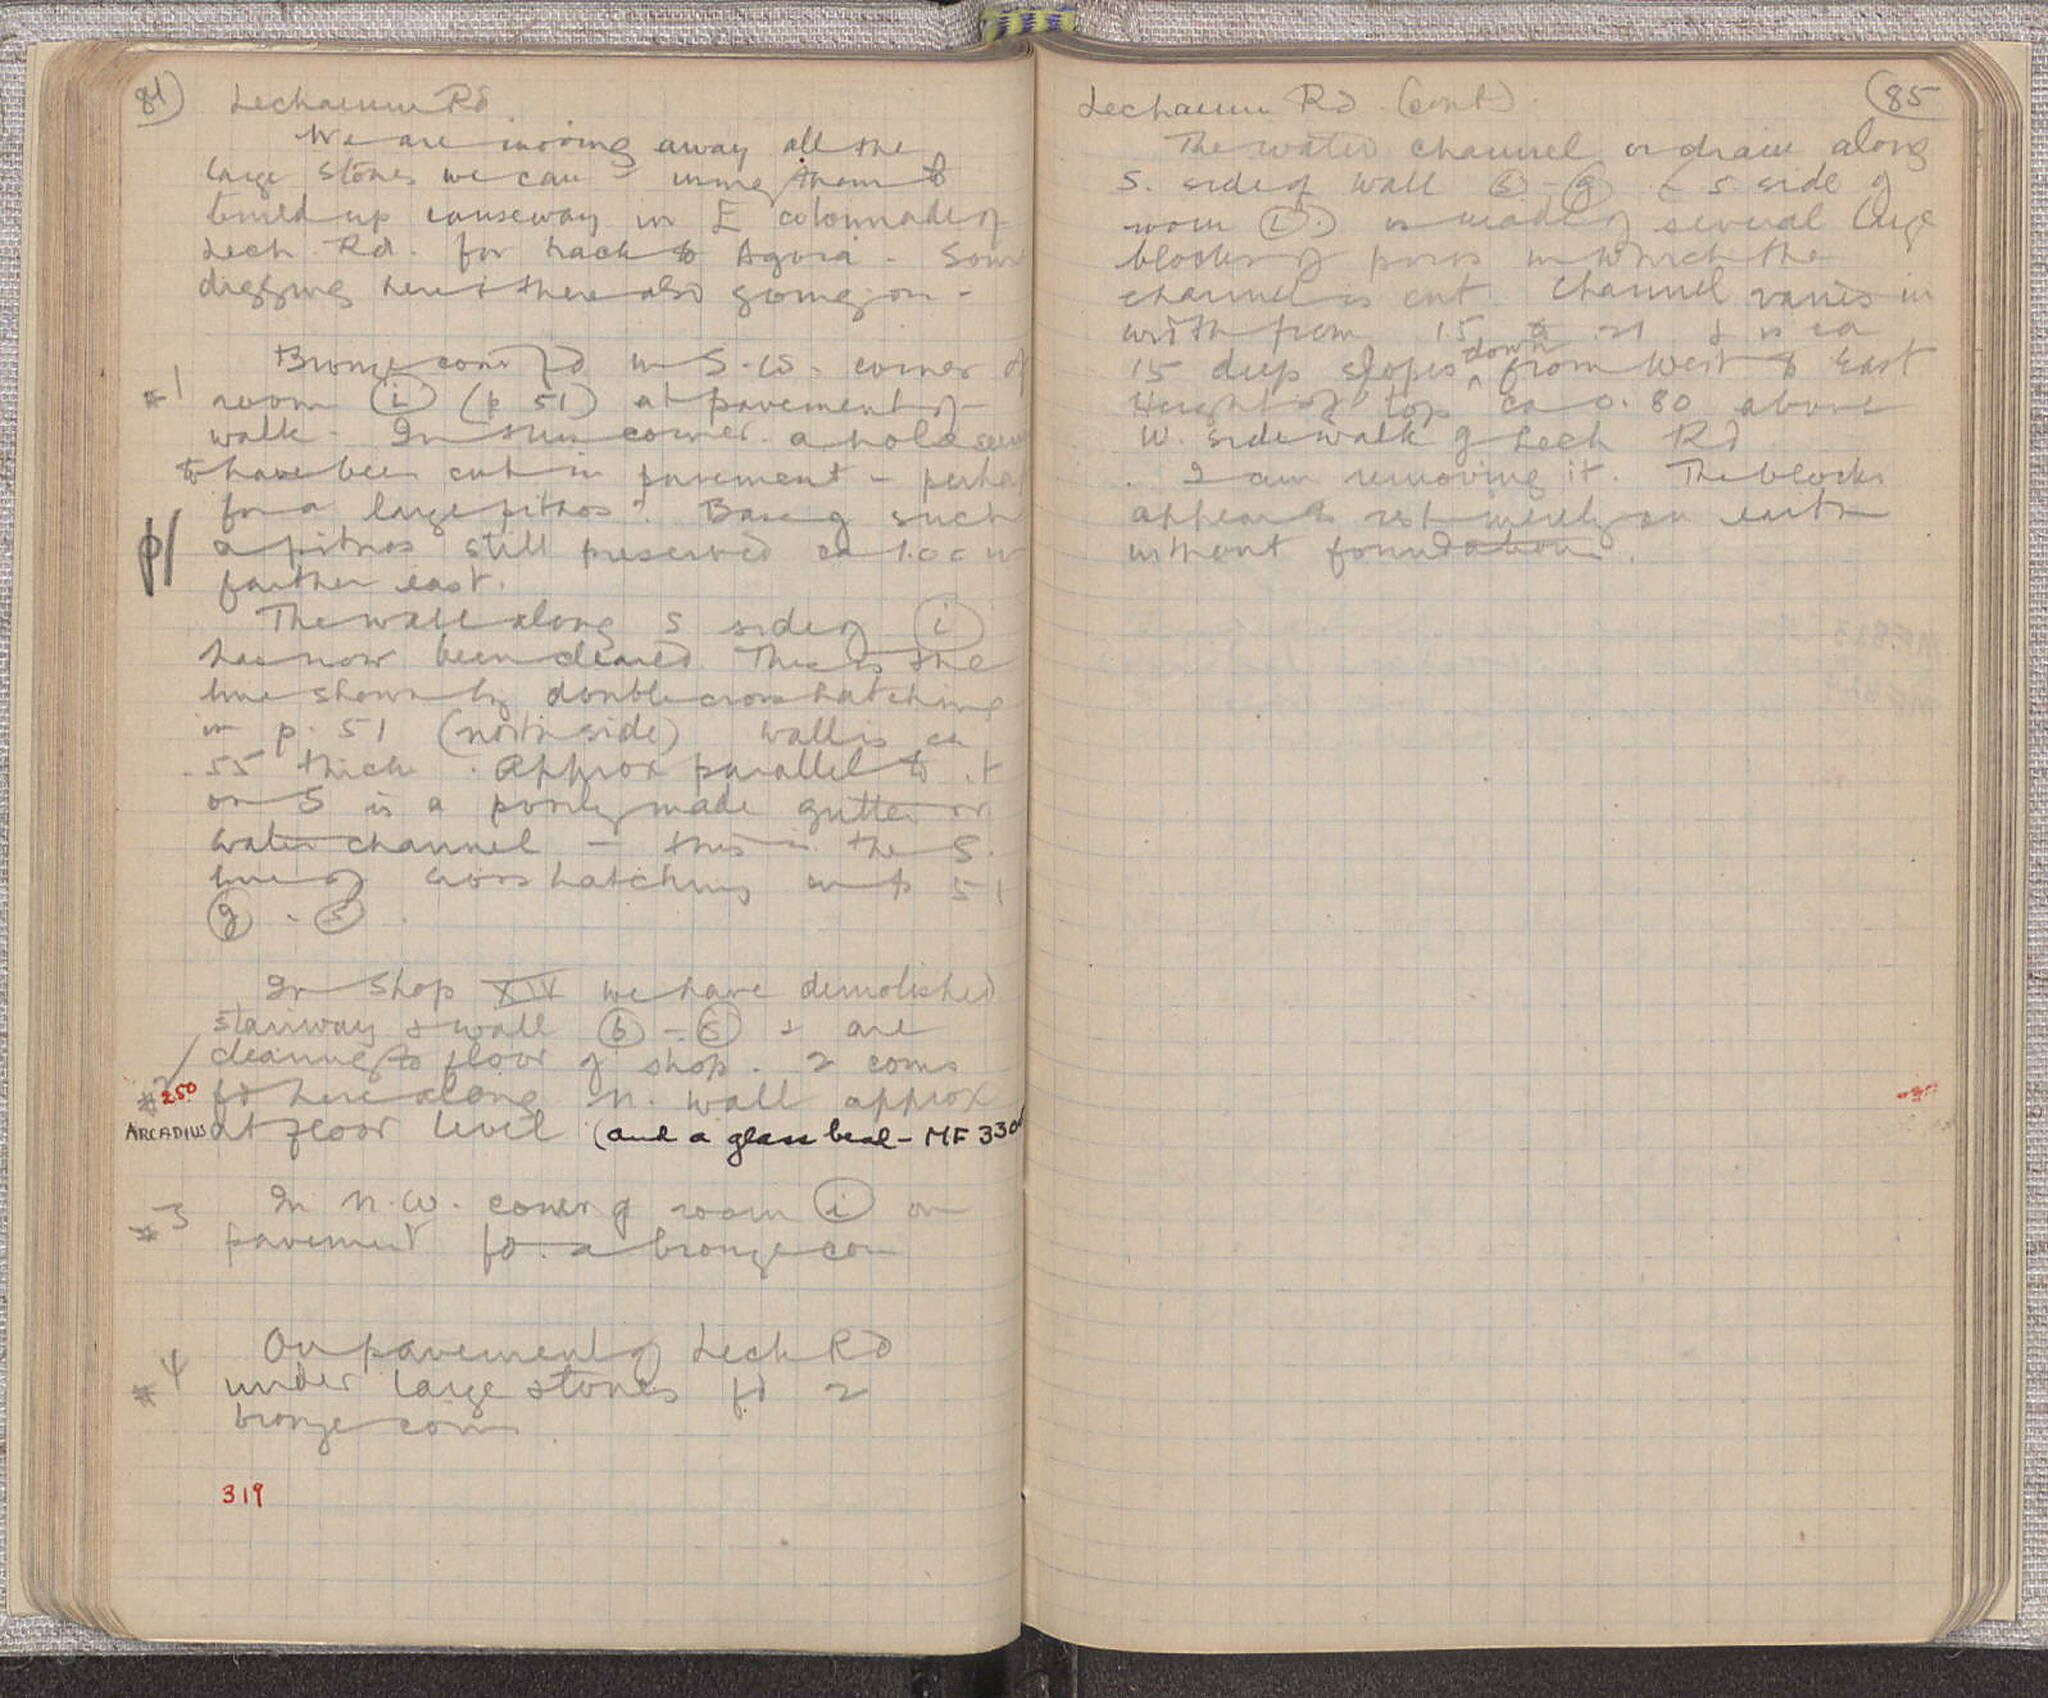 84) Lechaeum Rd
We are moving away all the
large stones we can & using them to
build up causeway in E colonnade of
Lech Rd. for track to Agora - Some
digging here & there also going on -
#1 Bronze coin fd in S.W. corner of
room (i) (p 51) at pavement of
walk - In this corner a hole seems
to have been cut in pavement - perhaps
for a large pithos? Base of such
p/ a pithos still preserved ca 1.00 m
farther east.
The wall along S side of (i)
has now been cleared. This is the
line shown by double cross hatching
in p. 51 (north side) Wall is ca
.55 thick. Approx parallel to it
on S is a poorly made gutter or
water channel - this is the S.
line of cross hatching on p 51
(g) - (s).
In Shop XIV we have demolished
stairway & wall (b) - (c) & are
cleaning to floor of shop. 2 coins
#2 250 fd here along N. wall approx
ARCADIUS at floor level (and a glass bead - MF 330
#3 In N.W. corner of room (i) on
pavement fd. a bronze coin
On pavement of Lech Rd
#4 under large stones fd 2
bronze coins
319
Lechaeum Rd (cont). (85
The water channel or drain along
S. side of wall (s) - (g) (S. side of
room (i).) is made of several large
blocks of poros in which the
channel is cut. Channel varies in
width from .15 to .21 & is ca
.15 deep slopes down from West to East
Height of top ca 0.80 above
W. sidewalk of Lech Rd
I am removing it. The blocks
appear to rest merely on earth
without foundation.